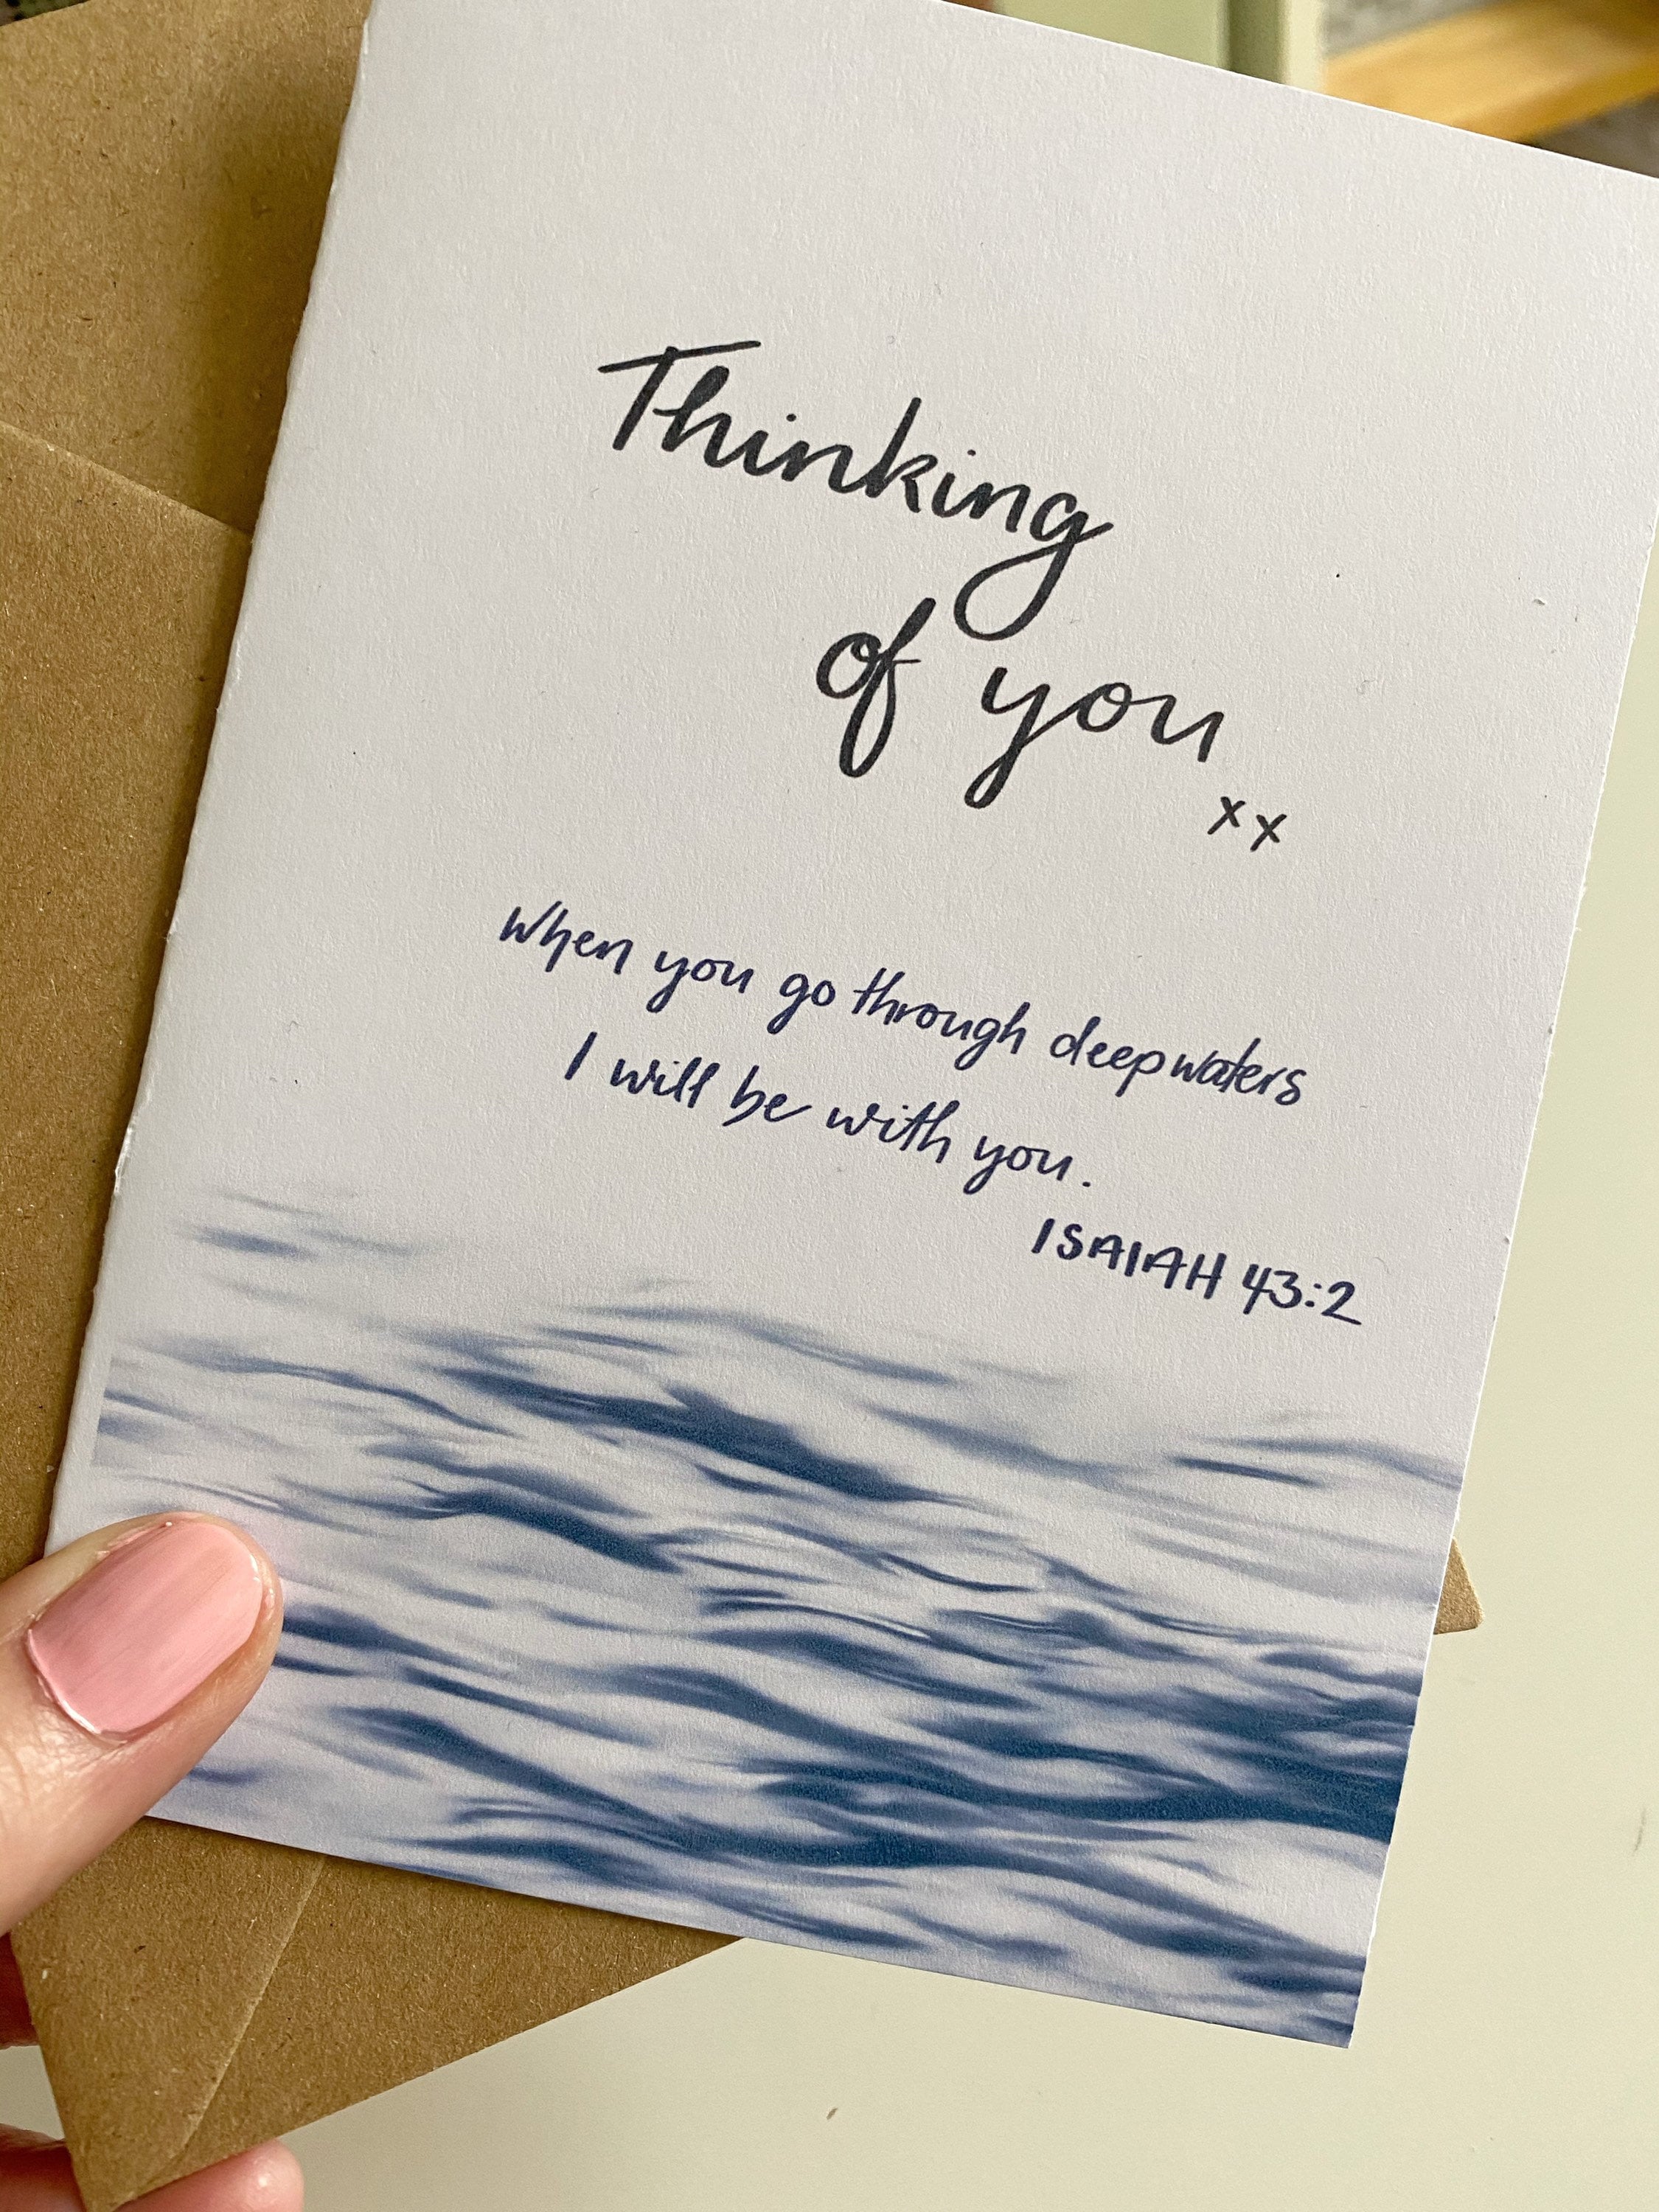 Thinking
of you
xx
When you go through deep waters
I will be with you.
ISAIAH 43:2